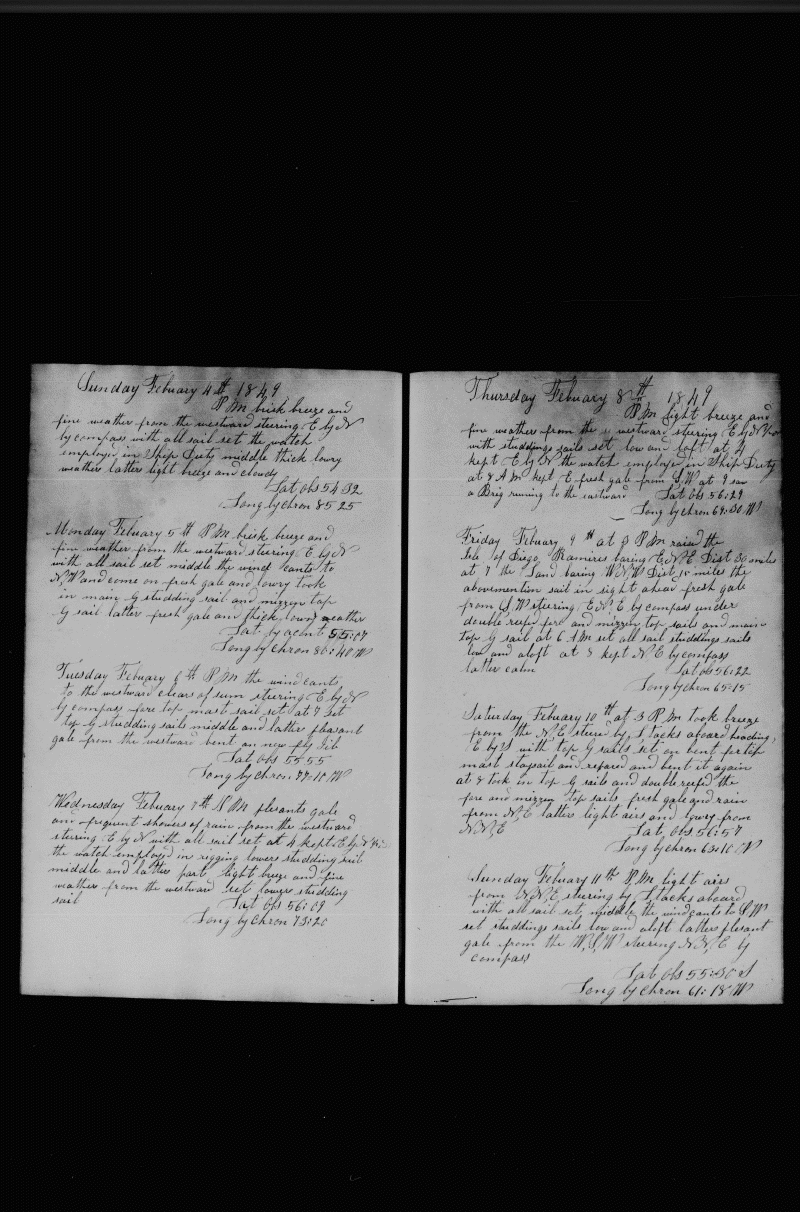 Sunday Febuary 4th 1849
P M brisk breeze and
fine weather from the westward steering E by N
by compass with all sail set the watch
employd in Ship Duty middle thick lowry
weather latter light breeze and cloudy
Lat obs 54 32
Long by chron 85 25
Monday Febuary 5th P M brisk breeze and
fine weather from the westward steering E by N
with all sail set middle the wind cants to
N, W and come on fresh gale and lowry took
in main G studding sail and mizzen top
G sail latter fresh gale and thick lowry weather
Lat by acont 55:07
Long by chron 80:40 W
Tuesday Febuary 6th P M the wind cants
to the westward clears of sum steering E by N
by compass fore top mast sail set at 7 set
top G studding sails middle and latter pleasant
gale from the westward bent an new fly Jib
Lat obs 55 55
Long by chron 77:18 W
Wednesday Febuary 7th P M plesants gale
and frequent showers of rain from the westward
steering E by N with all sail set at 4 kept E by N ½
the watch employd in rigging lowers studding sail
middle and latter part light breze and fine
weather from the westward set lowers studding
sail Lat obs 56:09
Long by chron 73:20
Thursday Febuary 8th 1849
P M light breeze and
fine weather from the westward steering E by N
with studdings sails set low and loft at 4
kept E by N the watch employe in Ship Duty
at 8 A M kept E fresh gale from S, W at 9 saw
a Brig running to the eastward Lat obs 56:29
Long by chron 69:30 W
Friday Febuary 9th at 3 P M raisd the
Isle of Diego Ramiris baring E, N, E Dist 30 miles
at 7 the Land baring W, N, W Dist 15 miles the
abovemention sail in sight ahead fresh gale
from S, W steering E, N, E by compass under
double reefd fore and mizzen top sails and main
top G sail at 6 A M set all sail studdings sails
low and aloft at 8 kept N, E by compass
latter calm Lat obs 56:22
Long by chron 65:15
Saturday Febuary 10th at 3 P M took breeze
from the N, E steerd by S, tacks aboard heading,
E by S with top G sails set on bent fortop
mast staysail and repard and bent it again
at 8 took in top G sails and double reefd the
fore and mizzen top sails fresh gale and rain
from N, E latter light airs and lowry from
N, N, E Lat, obs 56:57
Long by chron 63:10 W
Sunday Febuary 11th P, M light airs
from N, N, E steering by S, tacks aboard
with all sail set, middle the wind cants to S, W
set studdings sails low and aloft latters plesant
gale from the W, S, W steering N, N, E by
compass
Lat obs 55:30 S
Long by chron 61:18 W